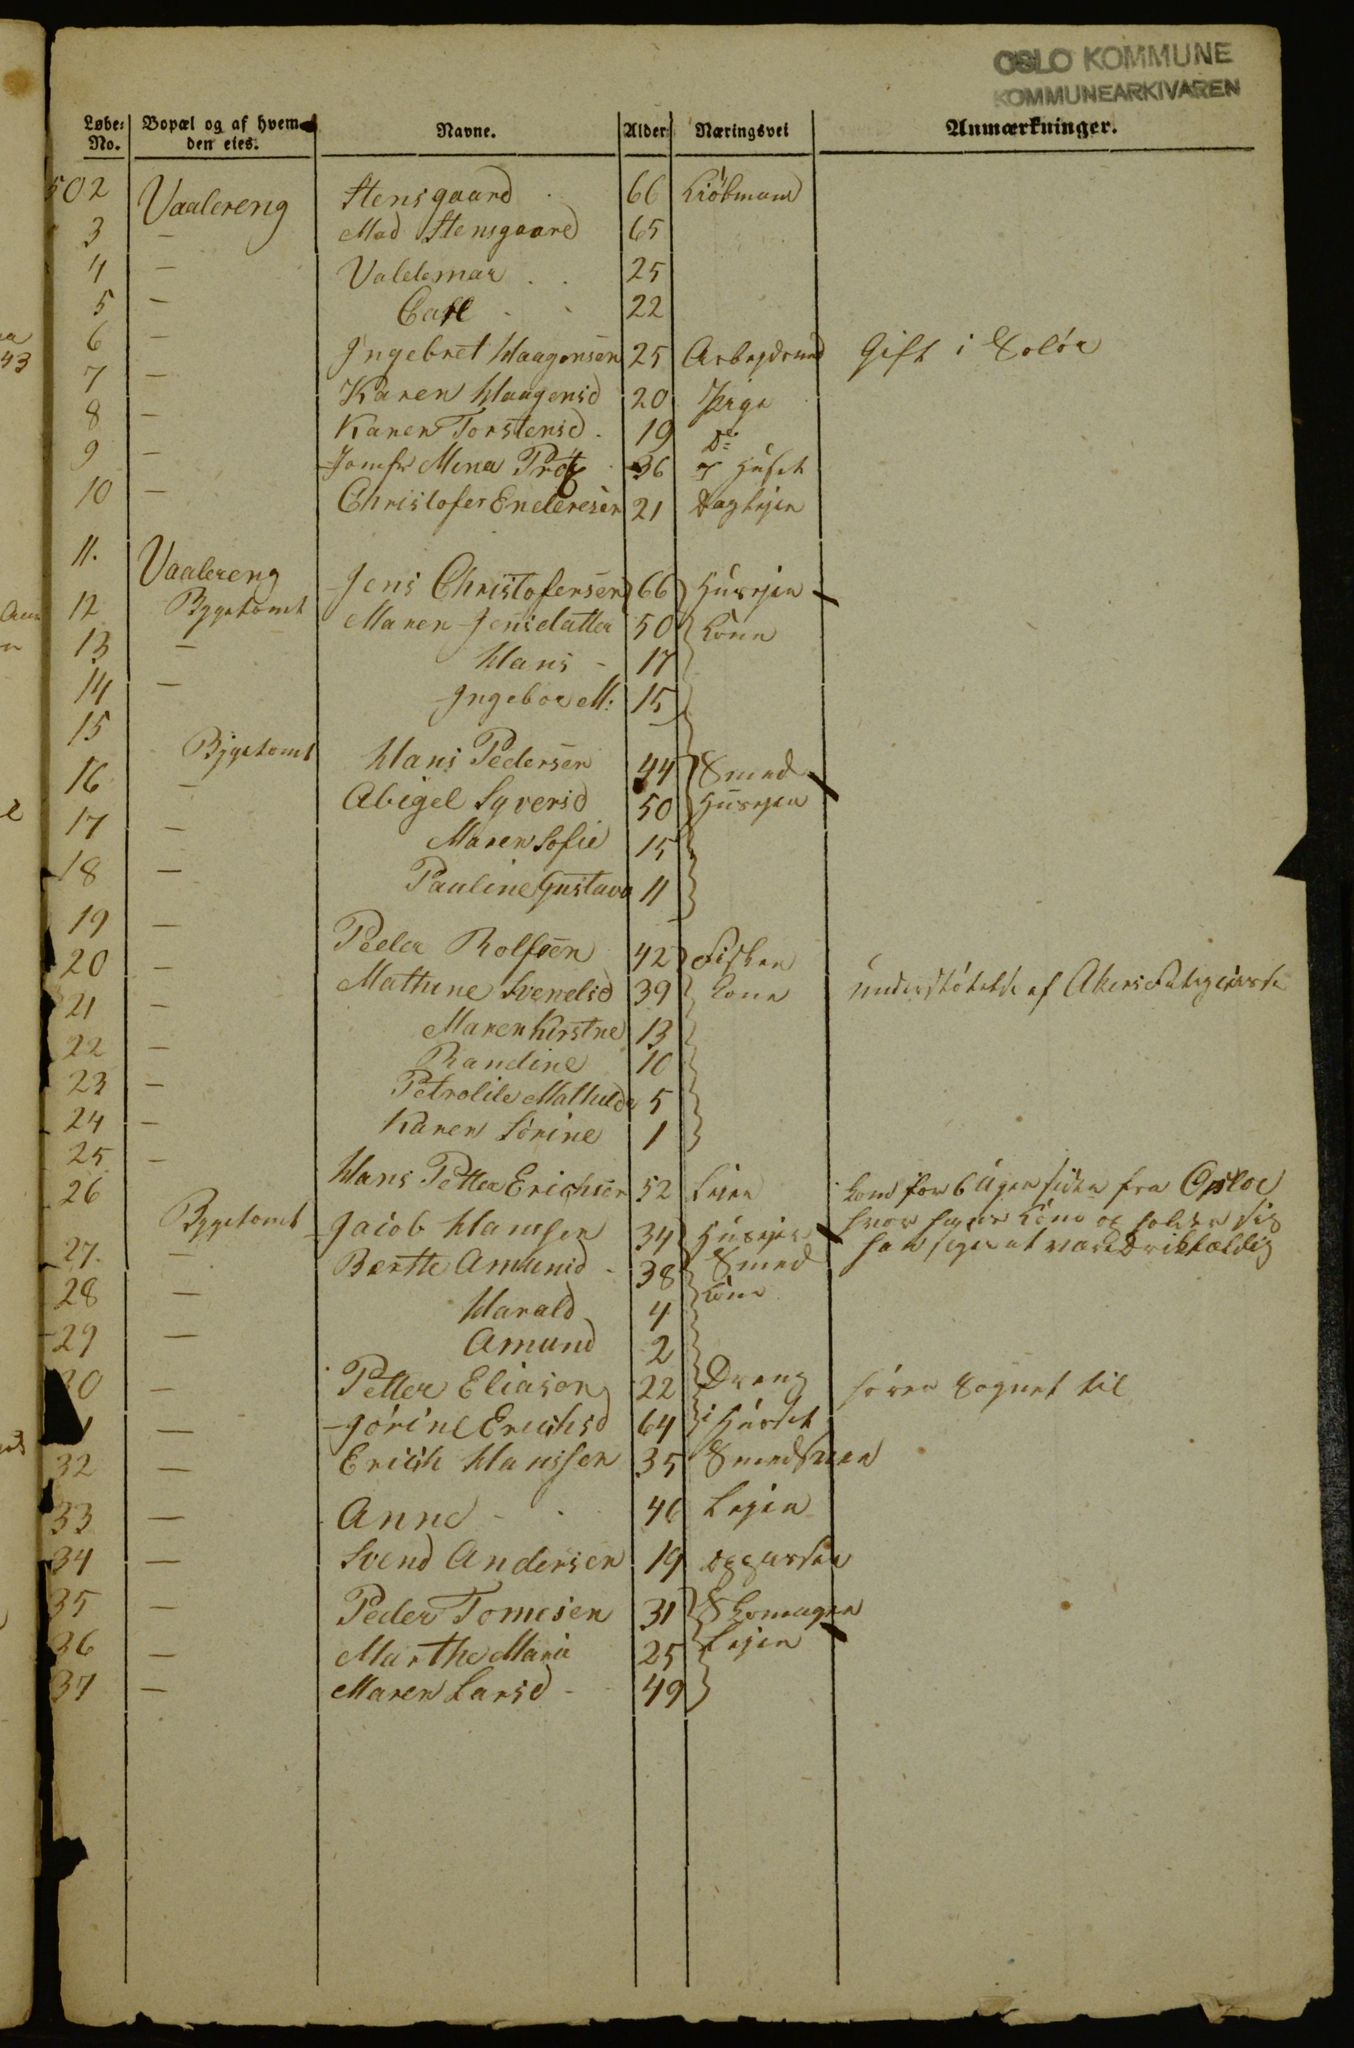 OSLO KOMMUNE
KOMMUNEARKIVAREN
Løbe- No. Bopæl og af hvem den eies. Navne. Alder Næringsvei Anmærkninger.
502 Vaalereng Stensgaard 66 Kiöbmand
3 — Mad Stensgaard 65
4 — Valdemar 25
5 — Carl 22
6 — Ingebret Haagensen 25 Gift i Solør
7 — Karen Haagensd 20 Pige
8 — Karen Torstensd. 19 Do
9 — Jomfr Mina 36 Huset
10 — Christofer Enderesen 21
11. Vaalereng Jens Christofersen 66 Huusejer
12 Bygetomt Maren Jensdatter 50 Kone
13 — Hans 17
14 — Ingebor M. 15
15 Bygetomt Hans Pedersen 44 Smed
16 — Abigel Syversd 50 Huusejer
17 — Maren Sofie 15
18 — Pauline Gustava 11
19 — Peder Rolfsen 42 Fisker
20 — Mathine Svendsd 39 Kone understøtelse af Akers
21 — Maren Kirstne 13
22 — Randine 10
23 — Petrolile Mathilde 5
24 — Karen Sörine 1
25 — Hans Petter Erichsen 52 kom for 6 Uger siden fra Opsloe
26 Bygetomt Jacob Hansen 34 Huusejer hvor Kone og
27. — Berthe Amunsd 38 Smed
28 — Harald 4 Kone
29 — Amund 2
30 — Petter Eliason 22 Dreng hører Sognet til
— Jörine Erichsd 64 i Huuset
32 — Erich Hanssen 35 Smedsven
33 — Anne 46 Lejer
34 — Svend Andersen 19
35 — Peder Tomesen 31 Skomager
36 — Marthe Marie 25 Lejer
37 — Maren Larsd 49